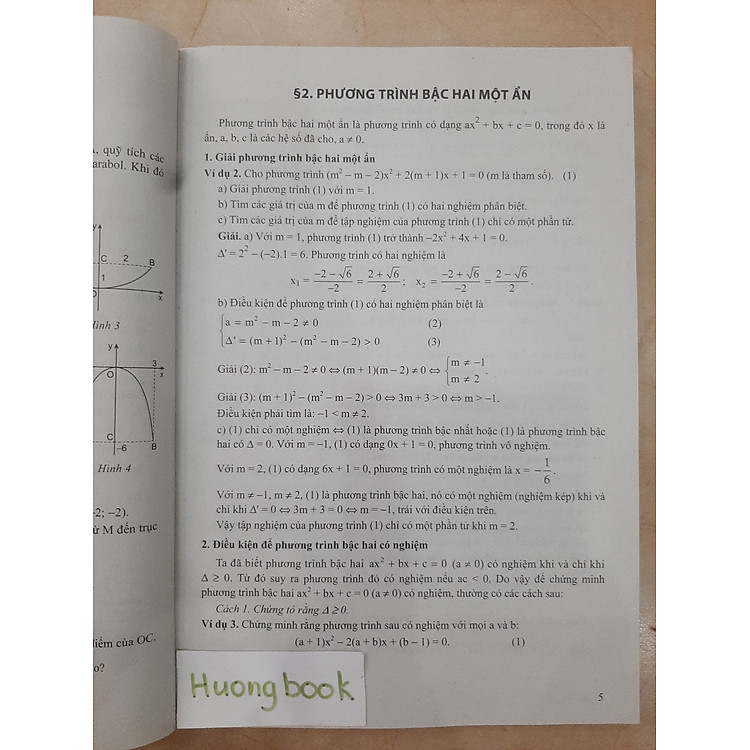 quỹ tích các
arabol. Khi đó
y
C 2 B
1
x
Hình 3
y
3
O
x
C
–6
B
Hình 4
–2).
M đến trục
điểm của OC.
o?
§2. PHƯƠNG TRÌNH BẬC HAI MỘT ẨN
Phương trình bậc hai một ẩn là phương trình có dạng ax² + bx + c = 0, trong đó x là
ẩn, a, b, c là các hệ số đã cho, a ≠ 0.
1. Giải phương trình bậc hai một ẩn
Ví dụ 2. Cho phương trình (m² – m – 2)x² + 2(m + 1)x + 1 = 0 (m là tham số). (1)
a) Giải phương trình (1) với m = 1.
b) Tìm các giá trị của m để phương trình (1) có hai nghiệm phân biệt.
c) Tìm các giá trị của m để tập nghiệm của phương trình (1) chỉ có một phần tử.
Giải. a) Với m = 1, phương trình (1) trở thành –2x² + 4x + 1 = 0.
Δ' = 2² – (–2).1 = 6. Phương trình có hai nghiệm là
x₁ = (–2 – √6)/(–2) = (2 + √6)/2 ; x₂ = (–2 + √6)/(–2) = (2 – √6)/2 .
b) Điều kiện để phương trình (1) có hai nghiệm phân biệt là
{ a = m² – m – 2 ≠ 0 (2)
Δ' = (m + 1)² – (m² – m – 2) > 0 (3)
Giải (2): m² – m – 2 ≠ 0 ⇔ (m + 1)(m – 2) ≠ 0 ⇔ { m ≠ –1
m ≠ 2 .
Giải (3): (m + 1)² – (m² – m – 2) > 0 ⇔ 3m + 3 > 0 ⇔ m > –1.
Điều kiện phải tìm là: –1 < m ≠ 2.
c) (1) chỉ có một nghiệm ⇔ (1) là phương trình bậc nhất hoặc (1) là phương trình bậc
hai có Δ = 0. Với m = –1, (1) có dạng 0x + 1 = 0, phương trình vô nghiệm.
Với m = 2, (1) có dạng 6x + 1 = 0, phương trình có một nghiệm là x = –1/6 .
Với m ≠ –1, m ≠ 2, (1) là phương trình bậc hai, nó có một nghiệm (nghiệm kép) khi và
chỉ khi Δ' = 0 ⇔ 3m + 3 = 0 ⇔ m = –1, trái với điều kiện trên.
Vậy tập nghiệm của phương trình (1) chỉ có một phần tử khi m = 2.
2. Điều kiện để phương trình bậc hai có nghiệm
Ta đã biết phương trình bậc hai ax² + bx + c = 0 (a ≠ 0) có nghiệm khi và chỉ khi
Δ ≥ 0. Từ đó suy ra phương trình đó có nghiệm nếu ac < 0. Do vậy để chứng minh
phương trình bậc hai ax² + bx + c = 0 (a ≠ 0) có nghiệm, thường có các cách sau:
Cách 1. Chứng tỏ rằng Δ ≥ 0.
Ví dụ 3. Chứng minh rằng phương trình sau có nghiệm với mọi a và b:
(a + 1)x² – 2(a + b)x + (b – 1) = 0. (1)
Huongbook
5